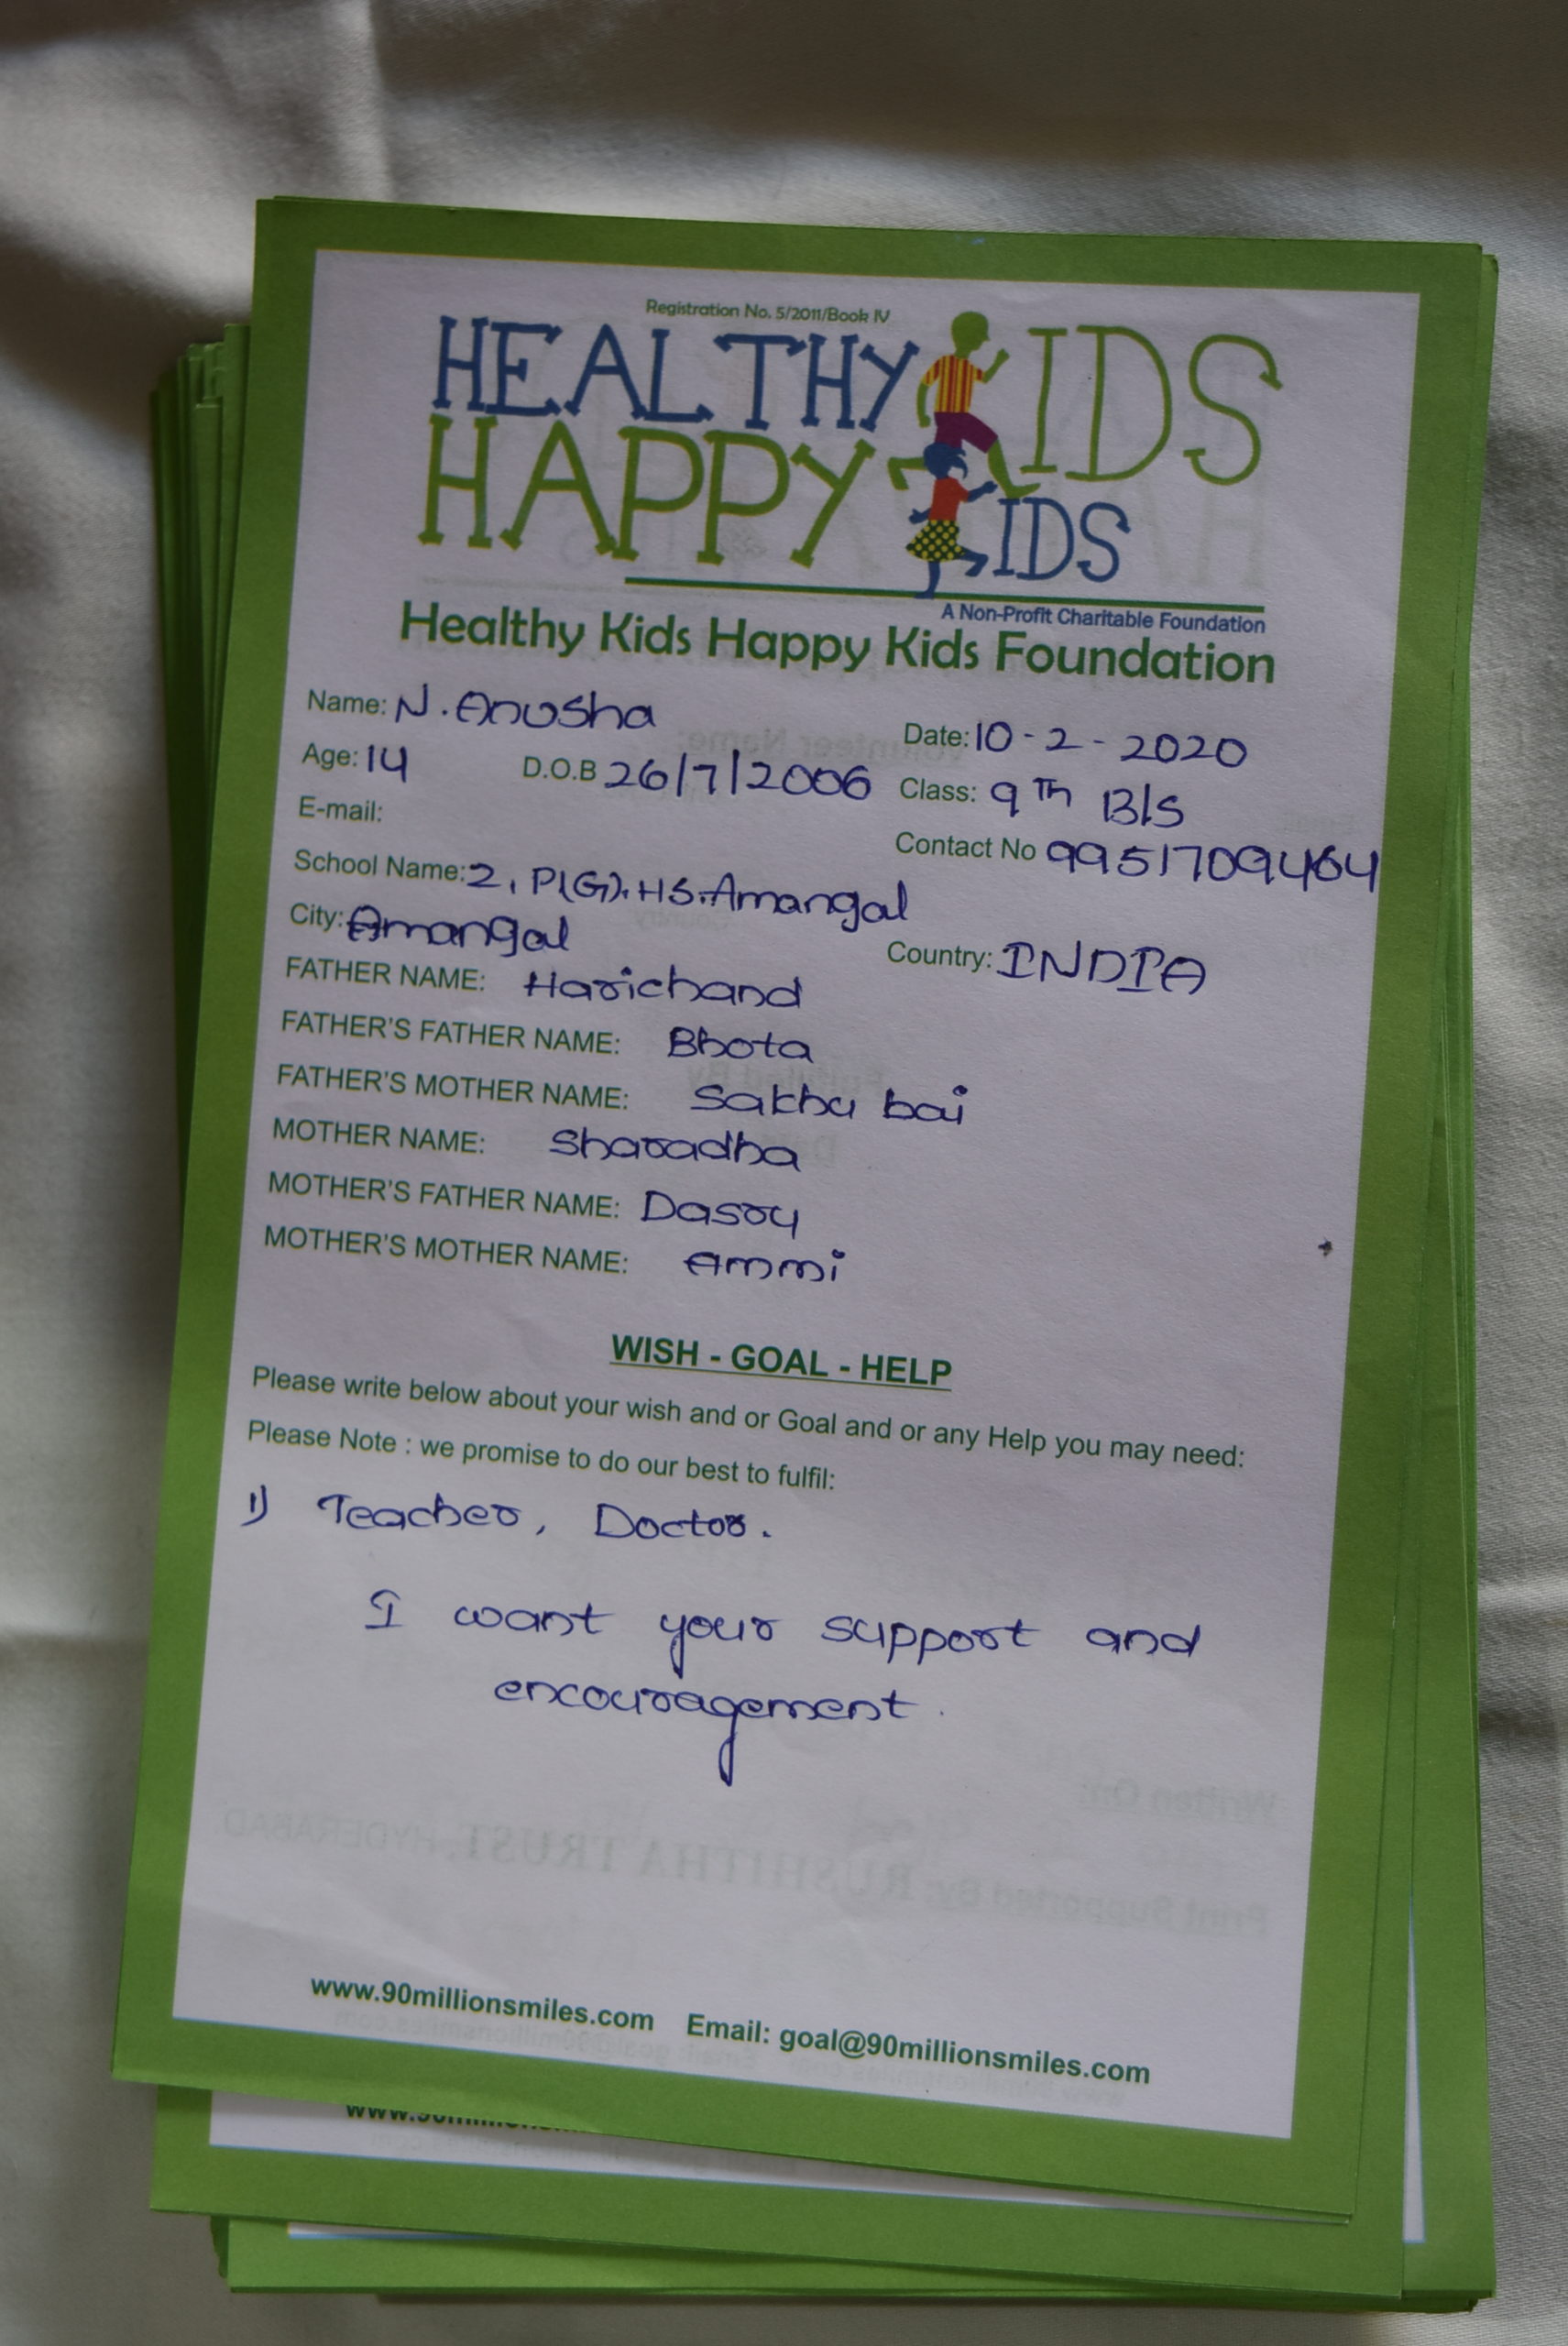 Registration No. 5/2011/Book IV
HEALTHY KIDS
HAPPY KIDS
A Non-Profit Charitable Foundation
Healthy Kids Happy Kids Foundation
Name: N. Anusha Date: 10-2-2020
Age: 14 D.O.B 26/7/2006 Class: 9th B/S
E-mail: Contact No 9951709464
School Name: Z, P(G). HS. Amangal
City: Amangal Country: INDIA
FATHER NAME: Harichand
FATHER'S FATHER NAME: Bhota
FATHER'S MOTHER NAME: Sakhu bai
MOTHER NAME: Sharadha
MOTHER'S FATHER NAME: Dasry
MOTHER'S MOTHER NAME: Ammi
WISH - GOAL - HELP
Please write below about your wish and or Goal and or any Help you may need:
Please Note : we promise to do our best to fulfil:
1) Teacher, Doctor.
I want your support and
encouragement.
Written On:
Print Supported By: RUSHITHA TRUST, HYDERABAD
www.90millionsmiles.com Email: goal@90millionsmiles.com